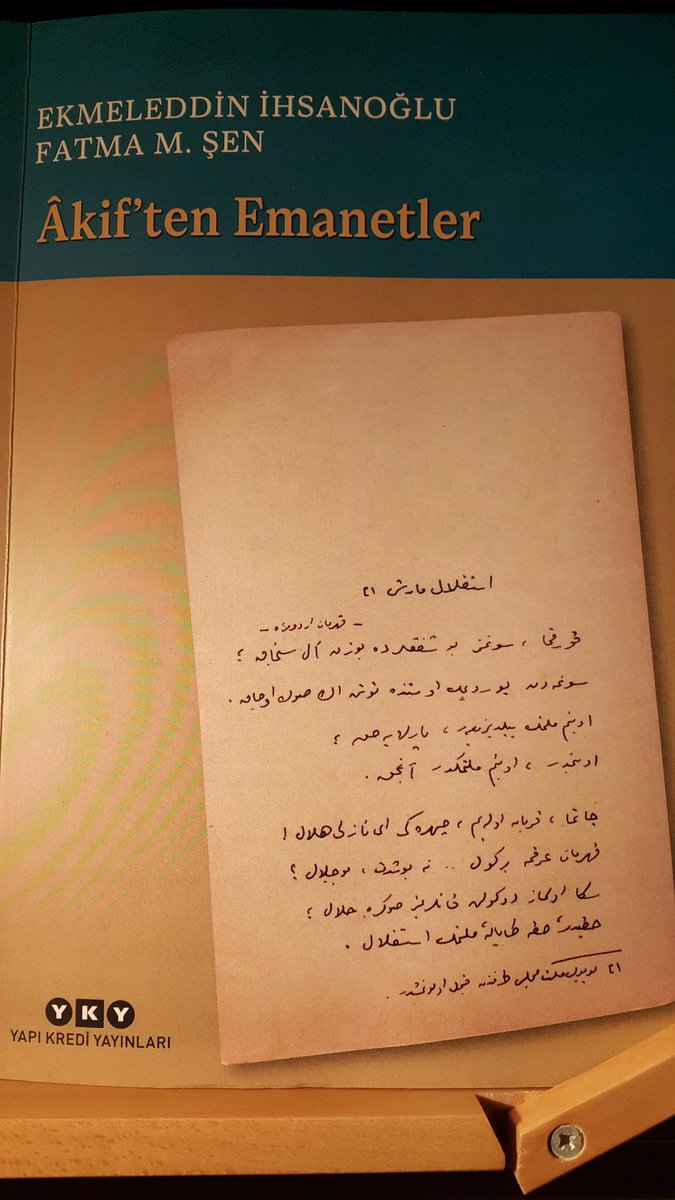 EKMELEDDİN İHSANOĞLU
FATMA M. ŞEN
Âkif'ten Emanetler
استقلال مارشی ٢١
– قهرمان اردومزه –
قورقما ، سونمز بو شفقلرده یوزن آل سنجاق ؛
سونمه‌دن یوردیمك اوستنده توتن اك صوك اوجاق .
او بنم ملتمك ییلدیزیدر ، پارلایه‌جق ؛
او بنمدر ، او بنم ملتمكدر آنجق .
چاتما ، قربان اوله‌یم ، چهره‌كی ای نازلی هلال !
قهرمان عرقمه بر كول .. نه بو شدت ، بو جلال ؟
سكا اولماز دوكولن قانلریمز صوكره حلال ؛
حقیدر ، حقه طاپان ملتمك استقلال .
٢١ بویوك ملت مجلسی طرفندن قبول اولونمشدر .
YKY
YAPI KREDİ YAYINLARI